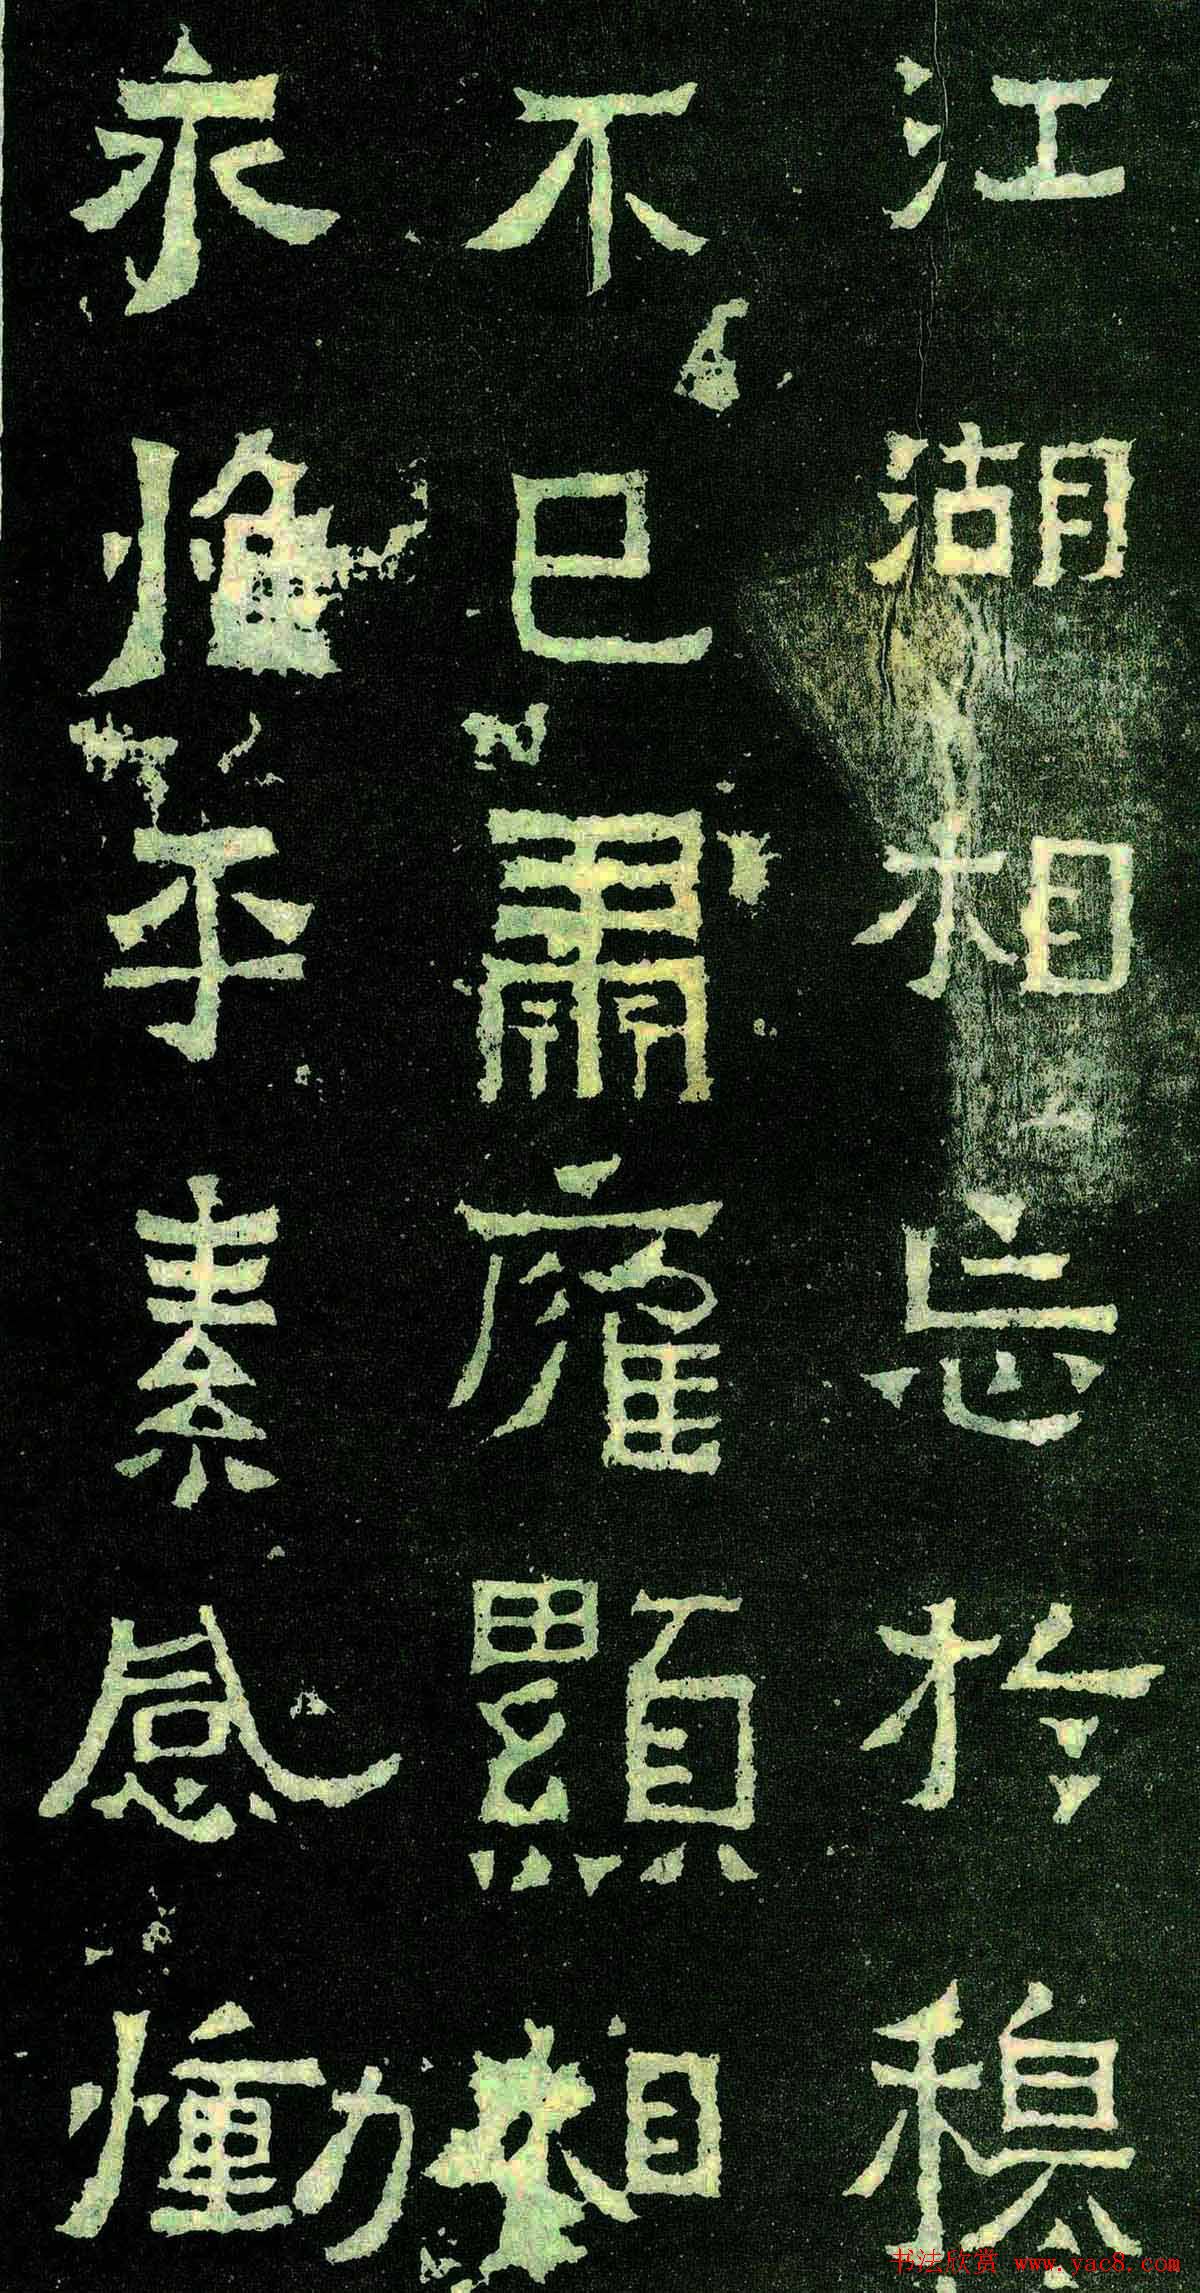 江湖相忘於穆
不已肅雍顯相
永惟平素感慟
书法欣赏 www.yac8.com